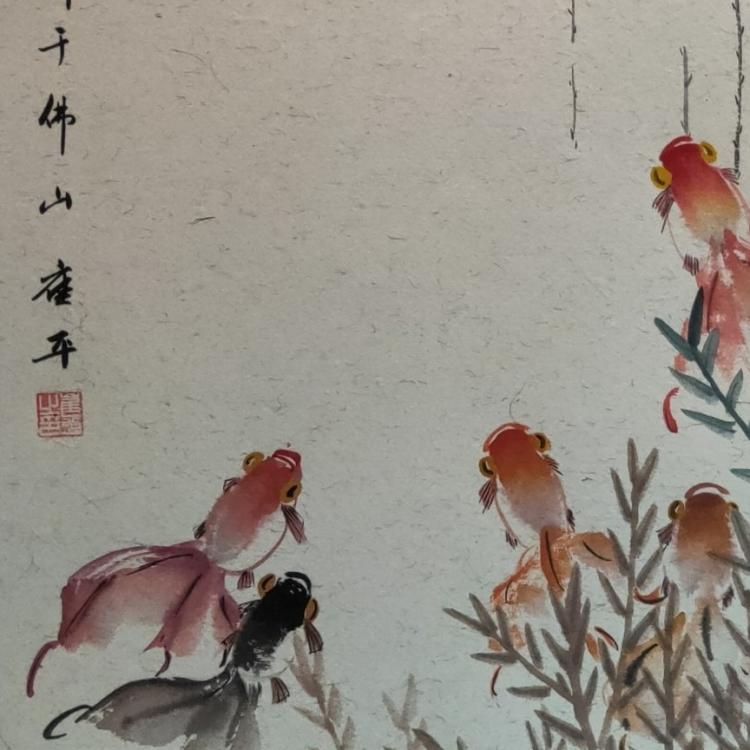 于佛山崔平